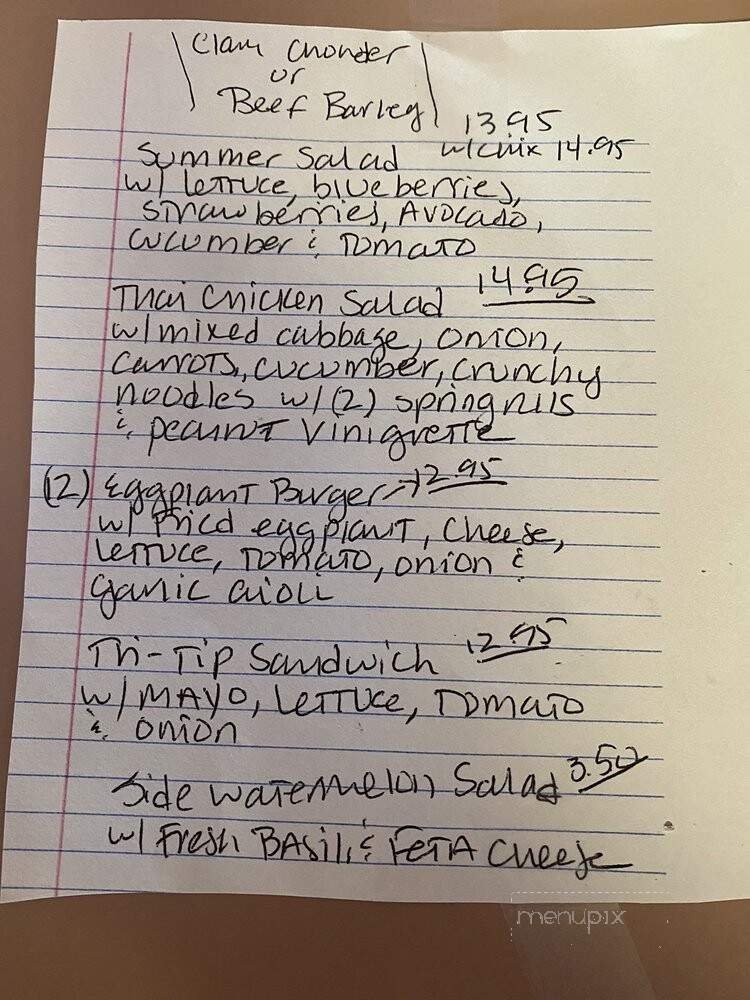 Clam Chonder
or
Beef Barley
13.95
Summer Salad w/chix 14.95
w/ lettuce, blueberries,
strawberries, Avocado,
cucumber & Tomato
Thai Chicken Salad 14.95
w/mixed cabbage, onion,
carrots, cucumber, crunchy
noodles w/(2) springrolls
& peanut Vinigrette
(12) Eggplant Burger 12.95
w/ Fried eggplant, cheese,
lettuce, Tomato, onion &
garlic aioli
Tri-Tip Sandwich 12.95
w/MAYO, Lettuce, Tomato
& onion
Side Watermelon Salad 3.50
w/ Fresh BASil, & FETA Cheese
menupix